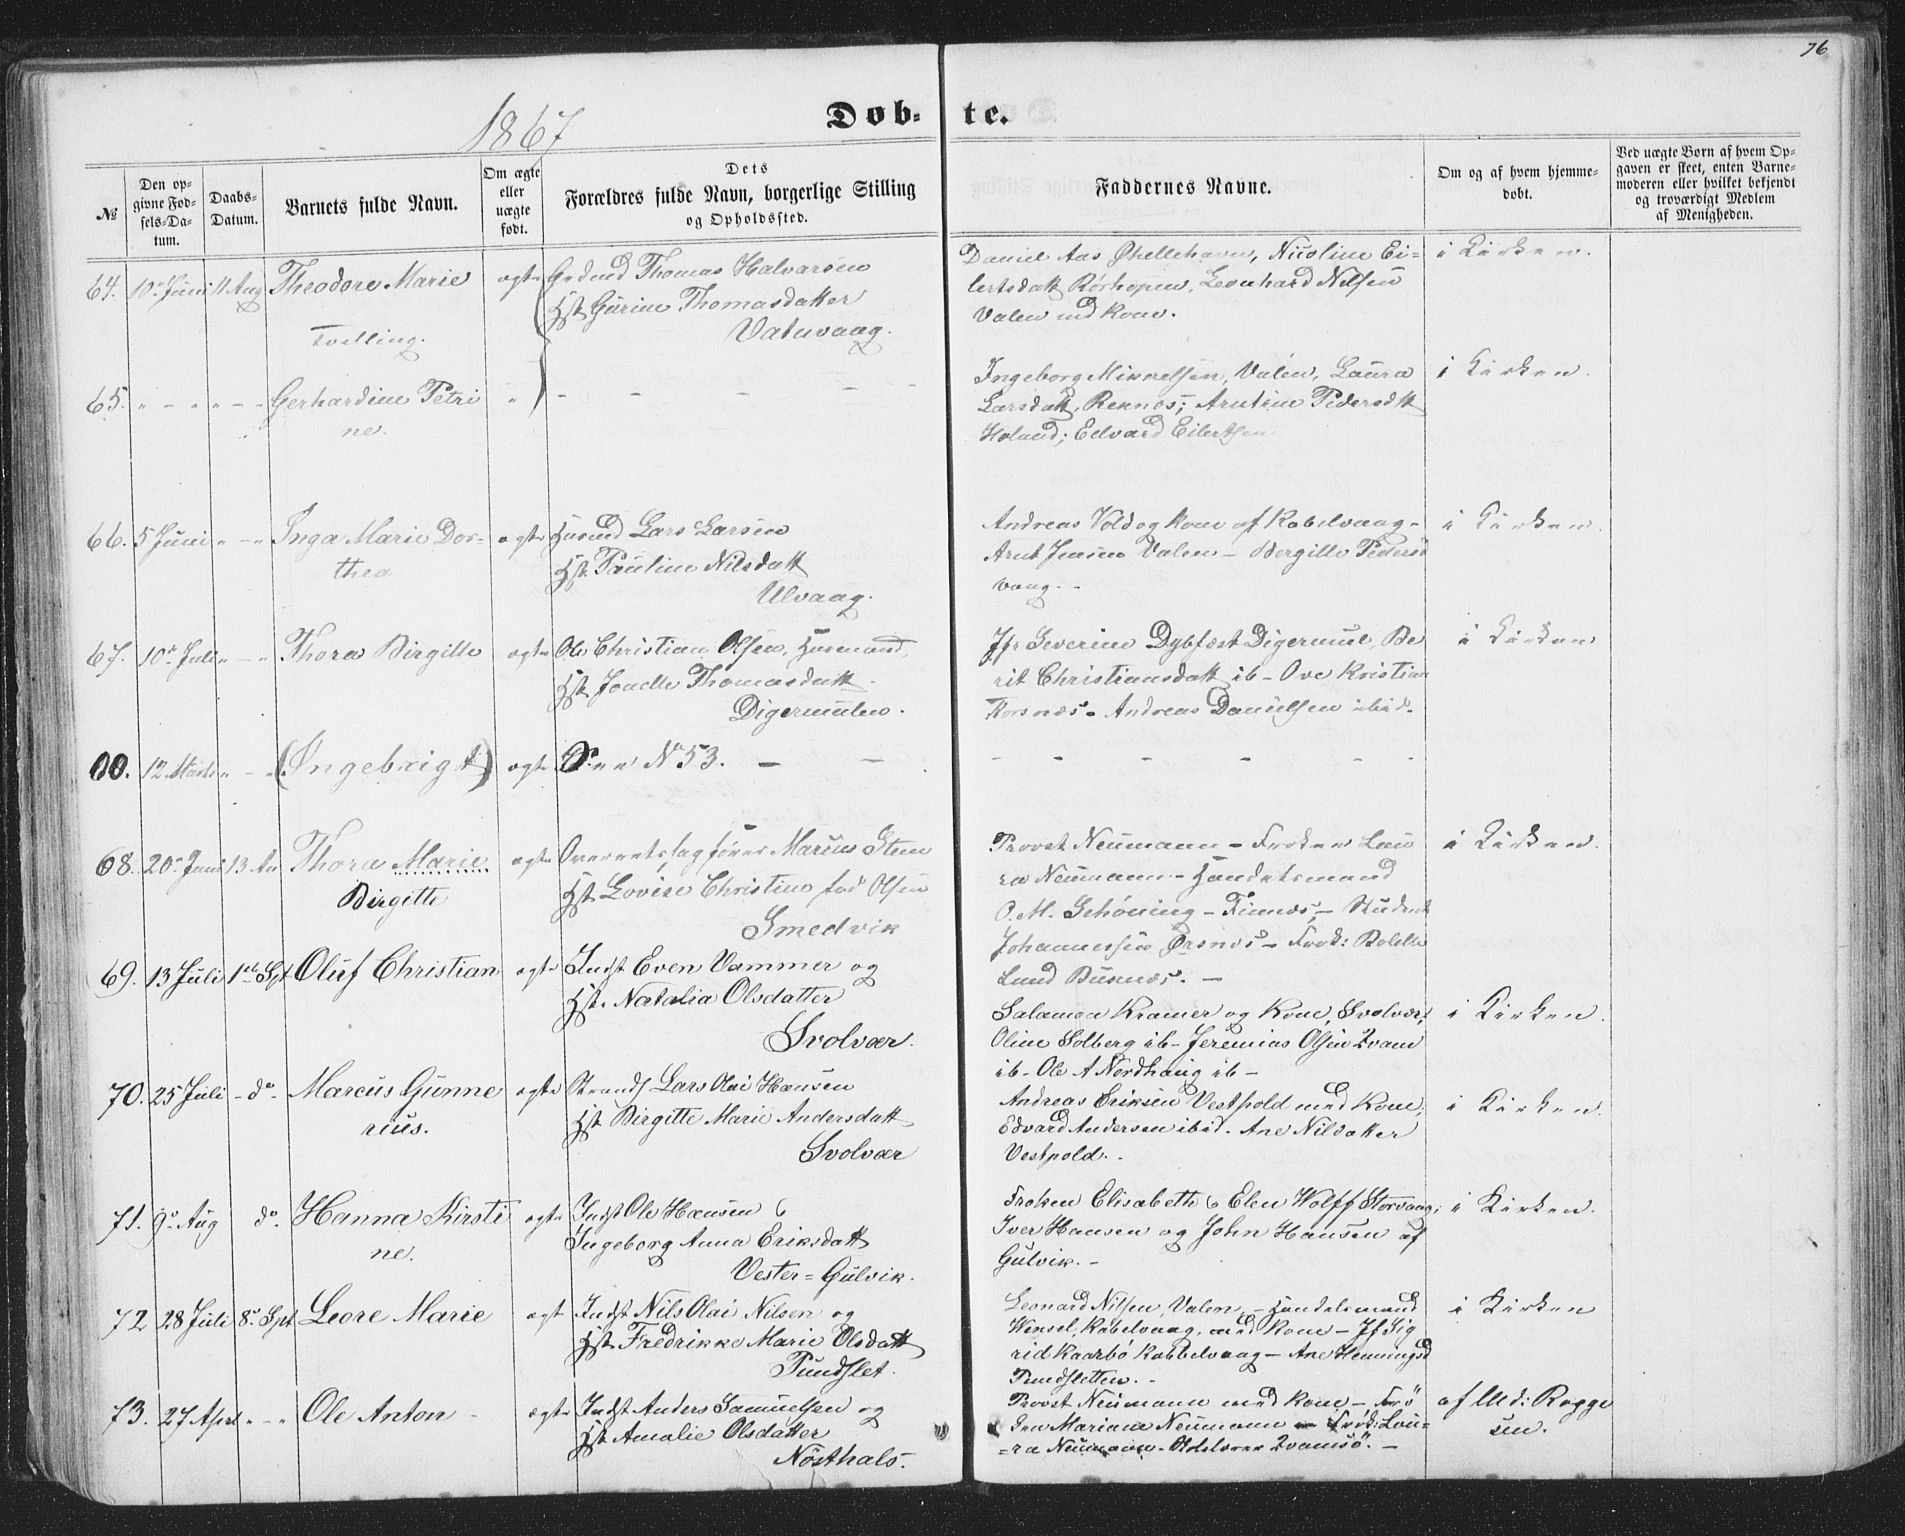 76
1867
Døb- te.
№
Den opgivne Fødsels-Datum.
Daabs-Datum.
Barnets fulde Navn.
Om ægte eller uægte født.
Dets Forældres fulde Navn, borgerlige Stilling og Opholdssted.
Faddernes Navne.
Om og af hvem hjemmedøbt.
Ved uægte Børn af hvem Opgaven er skeet, enten Barnemoderen eller hvilket bekjendt og troværdigt Medlem af Menigheden.
64. 10de Juni 11 Aug Theodore Marie ægte Grdmd Thomas Halvarsen
Hst Gurine Thomasdatter
Tvilling. Vatnvaag.
Daniel Aas Øhellehavn, Nicoline Ei-
lertsdatt Rørhopen, Leonhard Nilsen
Valen md Kone.
i Kirken.
65. " - " " - " Gerhardine Petri " - - - - -
ne.
Ingeborg Mikkelsen, Valen, Laura
Larsdatt, Reknes; Arntine Pedersdtt
Holand; Edvard Eilertsen
i Kirken.
66. 5 Juni " - " Inga Marie Dor- ægte Husmd Lars Larsen
thea Hst Pauline Nilsdatt
Ulvaag.
Andreas Vold og Kone af Kabelvaag -
Arnt Jensen Valen - Bergitte Pedersd
vaag. -
i Kirken.
67. 10de Juli " - " Thora Birgitte ægte Ole Christian Olsen, Husmand,
Hst Jonette Thomasdatt
Digermulen.
Jfr Severine Dybfest Digermul, Be
rit Christiansdatt ib - Ove Kristian
Korsnæs - Andreas Danielsen ibid.
i Kirken
00. 12 Marts " - " (Ingebrigt) ægte S. - - No 53. - -
68. 20de Juni 13 Au Thora Marie ægte Overretssagfører Marius Steen
Birgitte Hst Lovise Christine fød Olsen
Smedvik
Provst Neumann - Frøken Lau
ra Neumann - Handelsmand
O. M. Schøning - Finnes, - Student
Johannessen Ørsnes - Frøk: Bolette
Lund Busnæs. -
i Kirken.
69. 13 Juli 1ste Spt Oluf Christian ægte Indst Even Vammer og
Hst. Natalia Olsdatter
Svolvær.
Salamon Kramer og Kone, Svolvær;
Oline Solberg ib - Jeremias Olsen Kvam
ib - Ole A Nordhaug ib -
i Kirken.
70. 25 Juli - do - Marcus Gunne ægte Strands Lars Olai Hansen
rius. Hst Birgitte Marie Andersdatt
Svolvær
Andreas Eriksen Vestpold med Kone,
Edvard Andersen ibid. Ane Nilsdatter
Vestpold. -
i Kirken.
71. 9de Aug do. Hanna Kirsti ægte Indst Ole Hansen &
ne. Ingeborg Anna Eriksdatt
Vester = Gulvik.
Frøken Elisabeth & Elen Wolff Storvaag;
Iver Hansen og John Hansen af
Gulvik. -
i Kirken.
72. 28 Juli 8de Spt Leore Marie ægte Indst Nils Olai Nilsen og
Hst Fredrikke Marie Olsdatt
Pundslet.
Leonard Nilsen Valen, - Handelsmand
Wensel, Kabelvaag, med Kone - Jf Sig
rid Kaarbø Kabbelvaag - Ane Henningsd
Pundsletten. -
i Kirken
73. 27 April " - " Ole Anton - ægte Indst Anders Samuelsen og
Hst Amalie Olsdatter
Nøsthals.
Provst Neumann med Kone - Frø
ken Mariane Neumann - Frøk: Lau-
=ra Neumann - Kvamsø. -
af Md: Rogge
sen.